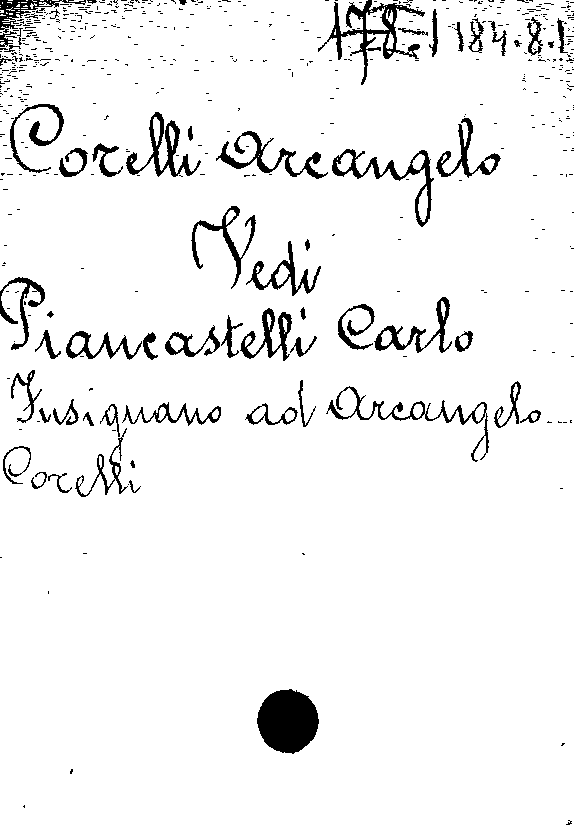 184.8.1
Corelli Arcangelo
Vedi
Piancastelli Carlo
Fusignano ad Arcangelo
Corelli